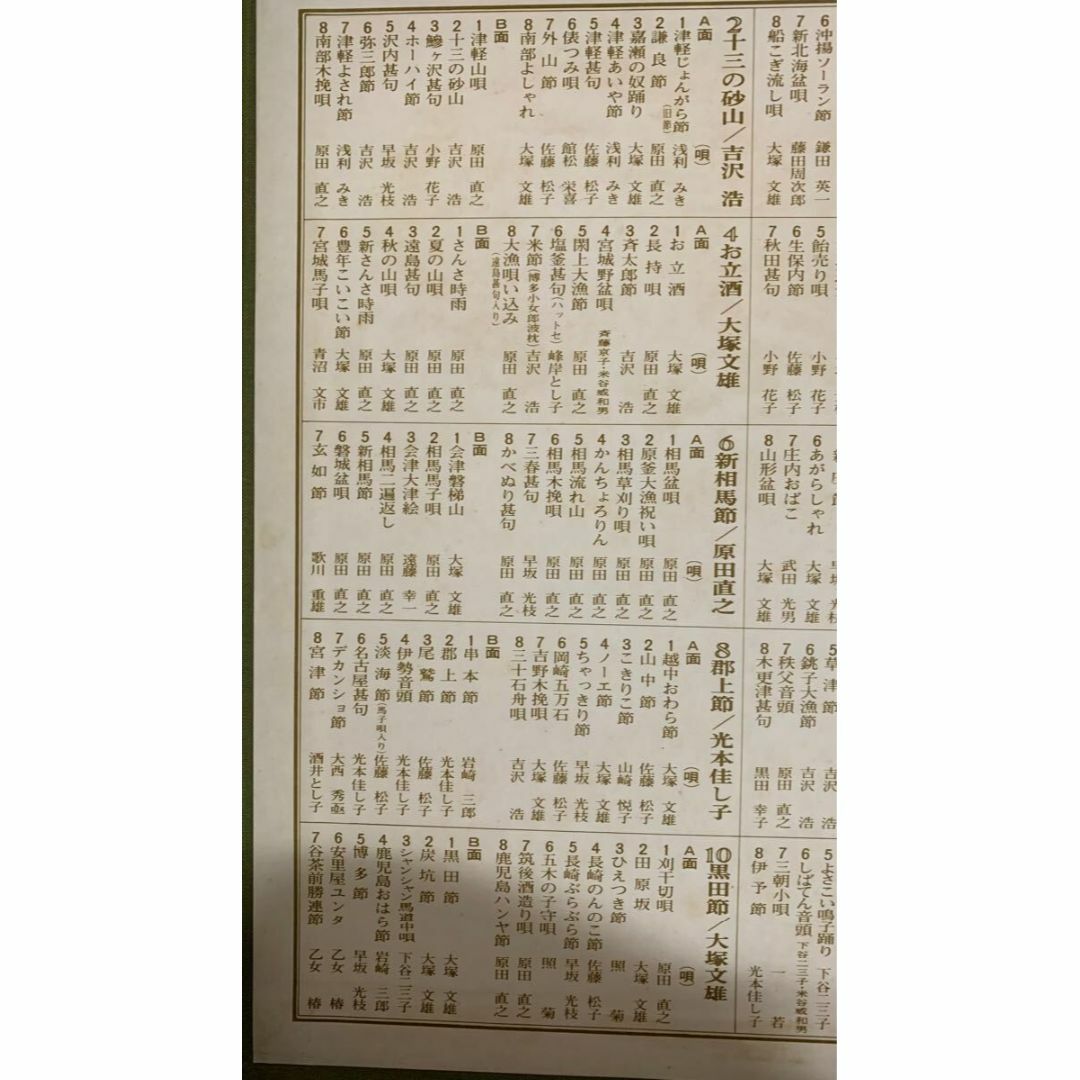 6沖揚ソーラン節 鎌田 英一
7新北海盆唄 藤田周次郎
8船こぎ流し唄 大塚 文雄
2十三の砂山/吉沢 浩
A面 (唄)
1津軽じょんがら節(旧節) 浅利 みき
2謙良節 原田 直之
3嘉瀬の奴踊り 大塚 文雄
4津軽あいや節 浅利 みき
5津軽甚句 佐藤 松子
6俵つみ唄 館松 栄喜
7外山節 佐藤 松子
8南部よしゃれ 大塚 文雄
B面
1津軽山唄 原田 直之
2十三の砂山 吉沢 浩
3鰺ヶ沢甚句 小野 花子
4ホーハイ節 吉沢 浩
5沢内甚句 早坂 光枝
6弥三郎節 吉沢 浩
7津軽よされ節 浅利 みき
8南部木挽唄 原田 直之
5飴売り唄 小野 花子
6生保内節 佐藤 松子
7秋田甚句 小野 花子
4お立酒/大塚文雄
A面 (唄)
1お立酒 大塚 文雄
2長持唄 原田 直之
3斉太郎節 吉沢 浩
4宮城野盆唄 斉藤京子・米谷威和男
5閖上大漁節 原田 直之
6塩釜甚句(ハットセ) 峰岸とし子
7米節(博多小女郎波枕) 吉沢 浩
8大漁唄い込み(遠島甚句入り) 原田 直之
B面
1さんさ時雨 原田 直之
2夏の山唄 原田 直之
3遠島甚句 原田 直之
4秋の山唄 大塚 文雄
5新さんさ時雨 原田 直之
6豊年こいこい節 大塚 文雄
7宮城馬子唄 青沼 文市
6あがらしゃれ 大塚 文雄
7庄内おばこ 武田 光男
8山形盆唄 大塚 文雄
6新相馬節/原田直之
A面 (唄)
1相馬盆唄 原田 直之
2原釜大漁祝い唄 原田 直之
3相馬草刈り唄 原田 直之
4かんちょろりん 原田 直之
5相馬流れ山 原田 直之
6相馬木挽唄 原田 直之
7三春甚句 早坂 光枝
8かべぬり甚句 原田 直之
B面
1会津磐梯山 大塚 文雄
2相馬馬子唄 原田 直之
3会津大津絵 遠藤 幸一
4相馬二遍返し 原田 直之
5新相馬節 原田 直之
6磐城盆唄 原田 直之
7玄如節 歌川 重雄
5草津節 吉沢 浩
6銚子大漁節 吉沢 浩
7秩父音頭 原田 直之
8木更津甚句 黒田 幸子
8郡上節/光本佳し子
A面 (唄)
1越中おわら節 大塚 文雄
2山中節 佐藤 松子
3こきりこ節 山崎 悦子
4ノーエ節 大塚 文雄
5ちゃっきり節 早坂 光枝
6岡崎五万石 佐藤 松子
7吉野木挽唄 大塚 文雄
8三十石舟唄 吉沢 浩
B面
1串本節 岩崎 三郎
2郡上節 光本佳し子
3尾鷲節 佐藤 松子
4伊勢音頭 光本佳し子
5淡海節(馬子唄入り) 佐藤 松子
6名古屋甚句 光本佳し子
7デカンショ節 大西 秀亟
8宮津節 酒井とし子
5よさこい鳴子踊り 下谷二三子
6しばてん音頭 下谷二三子・米谷威和男
7三朝小唄 一 若
8伊予節 光本佳し子
10黒田節/大塚文雄
A面 (唄)
1刈干切唄 原田 直之
2田原坂 大塚 文雄
3ひえつき節 照 菊
4長崎のんのこ節 佐藤 松子
5長崎ぶらぶら節 早坂 光枝
6五木の子守唄 照 菊
7筑後酒造り唄 原田 直之
8鹿児島ハンヤ節 原田 直之
B面
1黒田節 大塚 文雄
2炭坑節 大塚 文雄
3シャンシャン馬道中唄 下谷二三子
4鹿児島おはら節 岩崎 三郎
5博多節 早坂 光枝
6安里屋ユンタ 乙女 椿
7谷茶前勝連節 乙女 椿